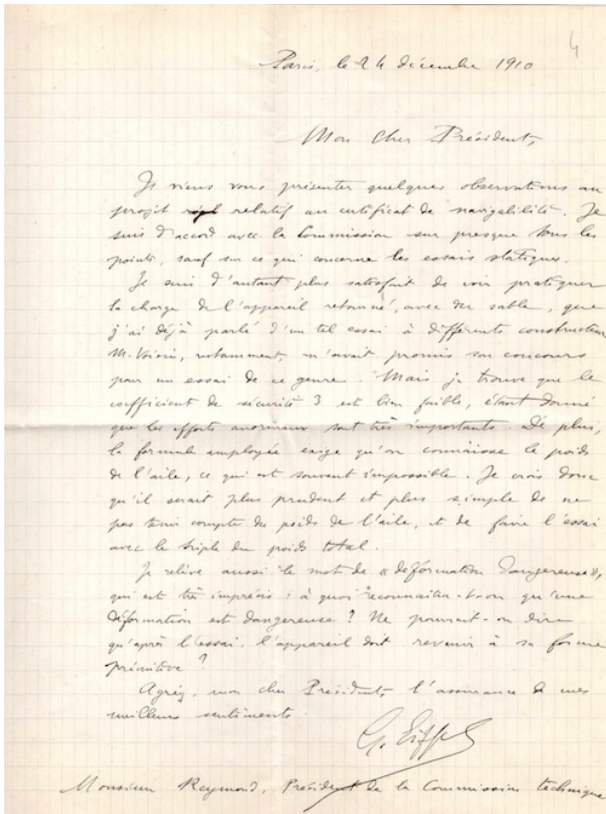 4
Paris, le 24 décembre 1910
Mon cher Président,
Je viens vous présenter quelques observations au
projet relatif au certificat de navigabilité. Je
suis d'accord avec la Commission sur presque tous les
points, sauf sur ce qui concerne les essais statiques.
Je suis d'autant plus satisfait de voir pratiquer
la charge de l'appareil retourné, avec du sable, que
j'ai déjà parlé d'un tel essai à différents constructeurs
M. Voisin, notamment, m'avait promis son concours
pour un essai de ce genre. Mais je trouve que le
coefficient de sécurité 3 est bien faible, étant donné
que les efforts anormaux sont très importants. De plus,
la formule employée exige qu'on connaisse le poids
de l'aile, ce qui est souvent impossible. Je crois donc
qu'il serait plus prudent et plus simple de ne
pas tenir compte du poids de l'aile, et de faire l'essai
avec le triple du poids total.
Je relève aussi le mot de « déformation dangereuse »,
qui est très imprécis : à quoi reconnaîtra-t-on qu'une
déformation est dangereuse ? Ne pourrait-on dire
qu'après l'essai, l'appareil doit revenir à sa forme
primitive ?
Agréez, mon cher Président, l'assurance de mes
meilleurs sentiments.
G. Eiffel
Monsieur Raymond, Président de la Commission technique